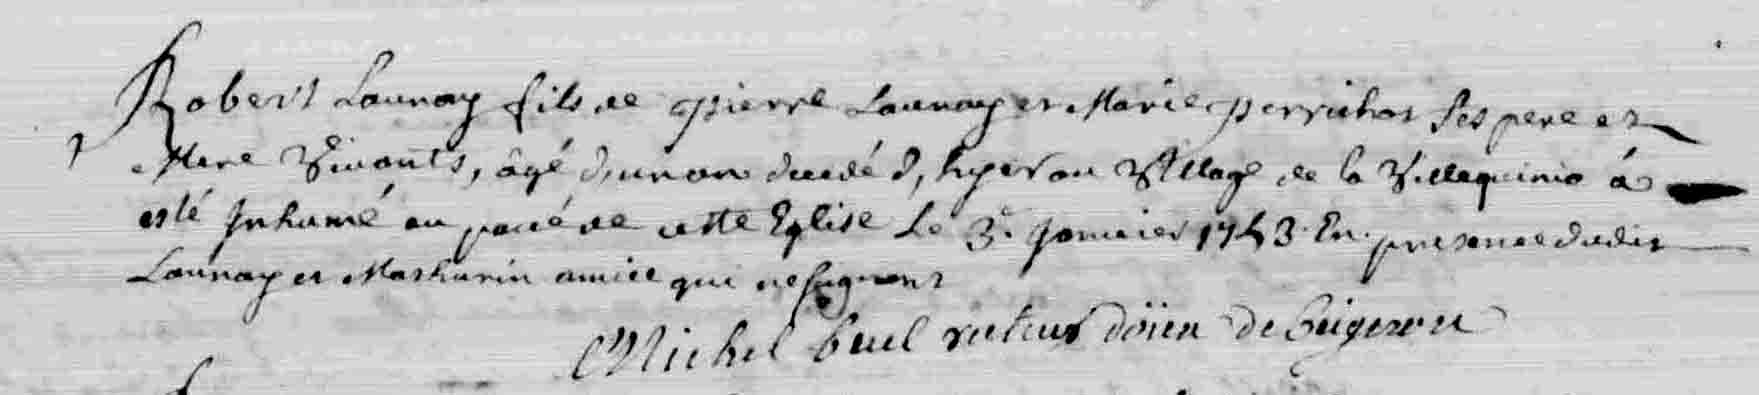 Robert Launay fils de Pierre Launay et Marie Perrichot ses pere et
Mere Vivants, âgé d'un an decedé d'hyer au Village de la Villequinio á
esté Inhumé au pavé de cette Eglise Le 3e. Janvier 1743. En presence dudit
Launay et Mathurin amice qui ne signent
Michel buel recteur doïen de